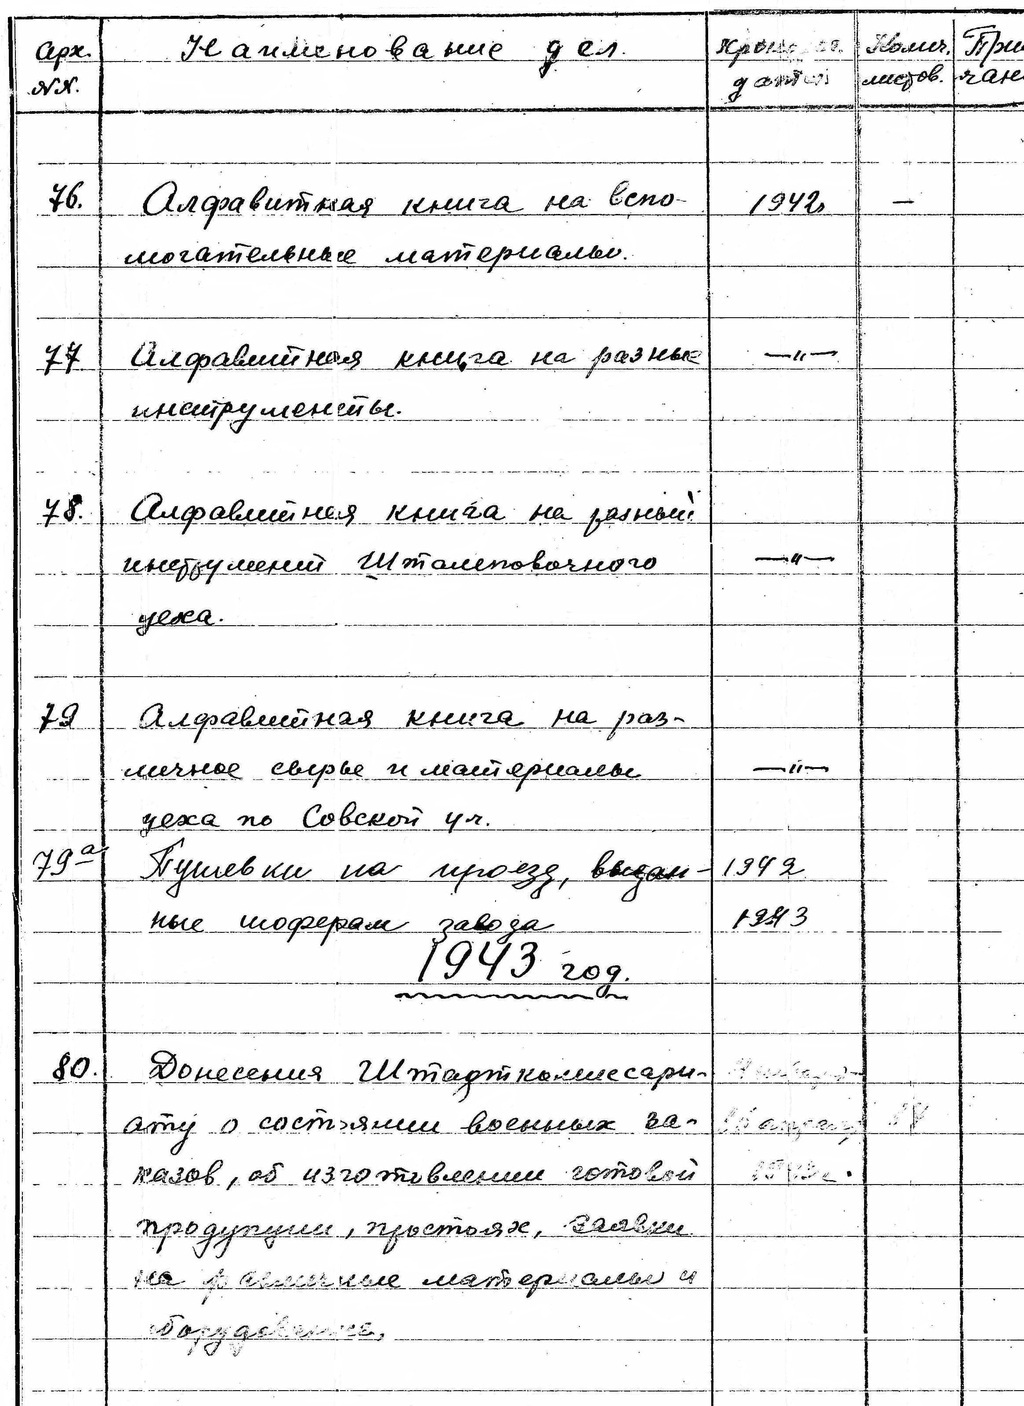 Арх. Наименование дел. Крайние Колич. При
№№. даты листов. чан
76. Алфавитная книга на вспо- 1942г. —
могательные материалы.
77 Алфавитная книга на разные —"—
инструменты.
78. Алфавитная книга на разный
инструмент Штамповочного —"—
цеха.
79 Алфавитная книга на раз-
личное сырье и материалы —"—
цеха по Совской ул.
79а Путевки на проезд, выдан- 1942
ные шоферам завода 1943
1943 год.
80. Донесения Штадткомиссари-
ату о состоянии военных за-
казов, об изготовлении готовой 1943г.
продукции, простоях, заявки
на различные материалы и
оборудование.